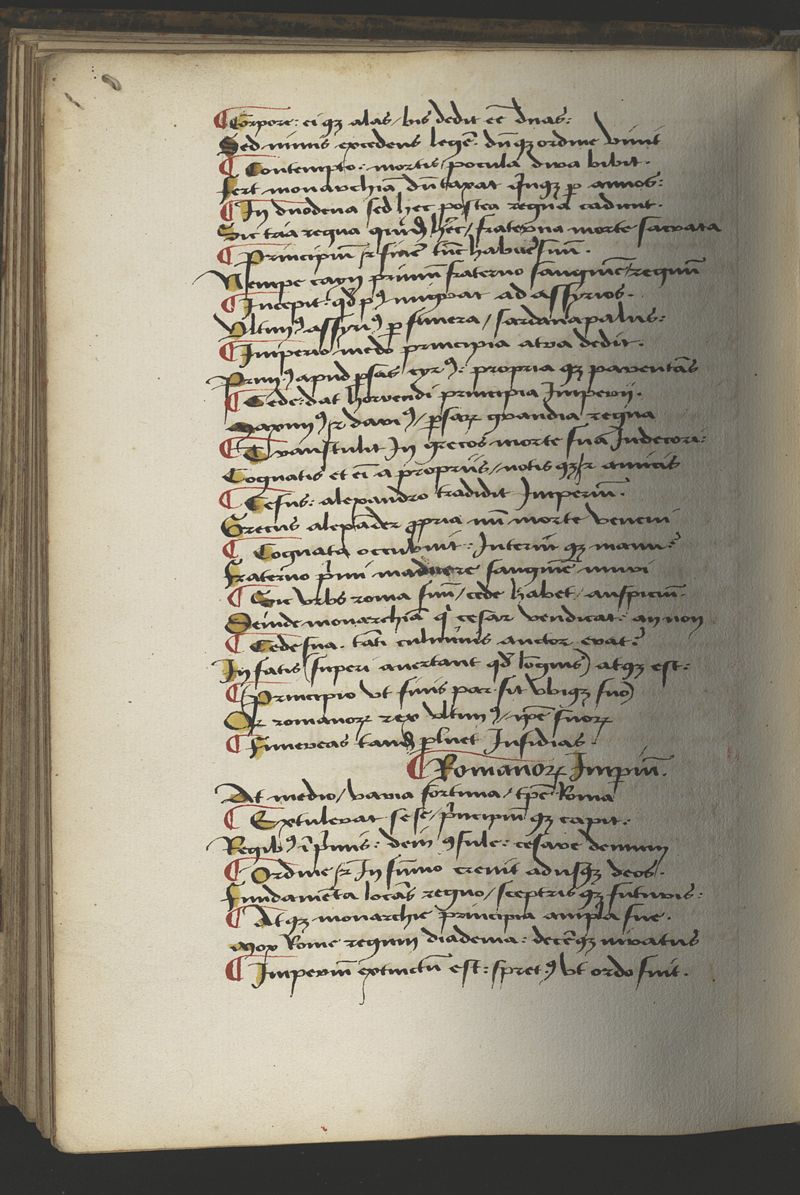 ¶ Corpore: ei qȝ alas / bis dedit eē duas:
Sed nimis excedens legē: dūqȝ ordine viuit
¶ Contempto: mortis / pocula dira bibit.
Fert monarchiā dūtaxat quīqȝ p annos:
¶ In duodena sed hec postea regna cadunt.
Sic tria regna quidē hec / fraterna morte sacrata
¶ Principiū et finē tūc habuere suū.
Nempe cayn primū fraterno sanguine regnū
¶ Incepit: qd pꝰ migrat ad assyrios.
Vltimꝰ assyriꝰ p funera / sardanapalus:
¶ Imperio medo principia atra dedit.
Primꝰ apud psas cyrꝰ: propria qȝ parentās
¶ Cede: dat horrendi principia Imperij.
Maximꝰ et dariꝰ / psaꝝ grandia regna
¶ Transtulit In grecos morte sua Indecori:
Cognatis et eī a propriis / notis qȝ et amicis
¶ Cesus: alexandro tradidit Imperiū.
Grecus alexāder ppria nū morte veneni
¶ Cognata occubuit: Interiit qȝ manu?
Fraterno pmi maduere sanguīe muri
¶ Sic vrbs roma suū / cede habet / auspiciū.
Deinde monarchiā q cesar vendicat: an non
¶ Cede sua. tāti culminis auctor erat?
In fatis (superi auertant qd lōgius) atqȝ est:
¶ (Principio vt finis par sit vbiqȝ suo)
Or romanoꝝ rex vltimꝰ / ipē suoꝝ
¶ Funereas tandē pluet Insidias.
¶ Romanoꝝ Impiū.
At medio / varia fortuna / tpē Roma
¶ Extulerat sese / pncipiū qȝ capit.
Regibꝰ ī pmis: dein ꝯsule: cesare demum
¶ Ordine et In sūmo creuit adusqȝ deos.
Fundamēta locās regno / sceptris qȝ futuris:
¶ Atqȝ monarchie principia ampla sue.
Mox Rome regum diadema: decēqȝ
¶ Imperiū extinctū est: spretꝰ vt ordo fuit.